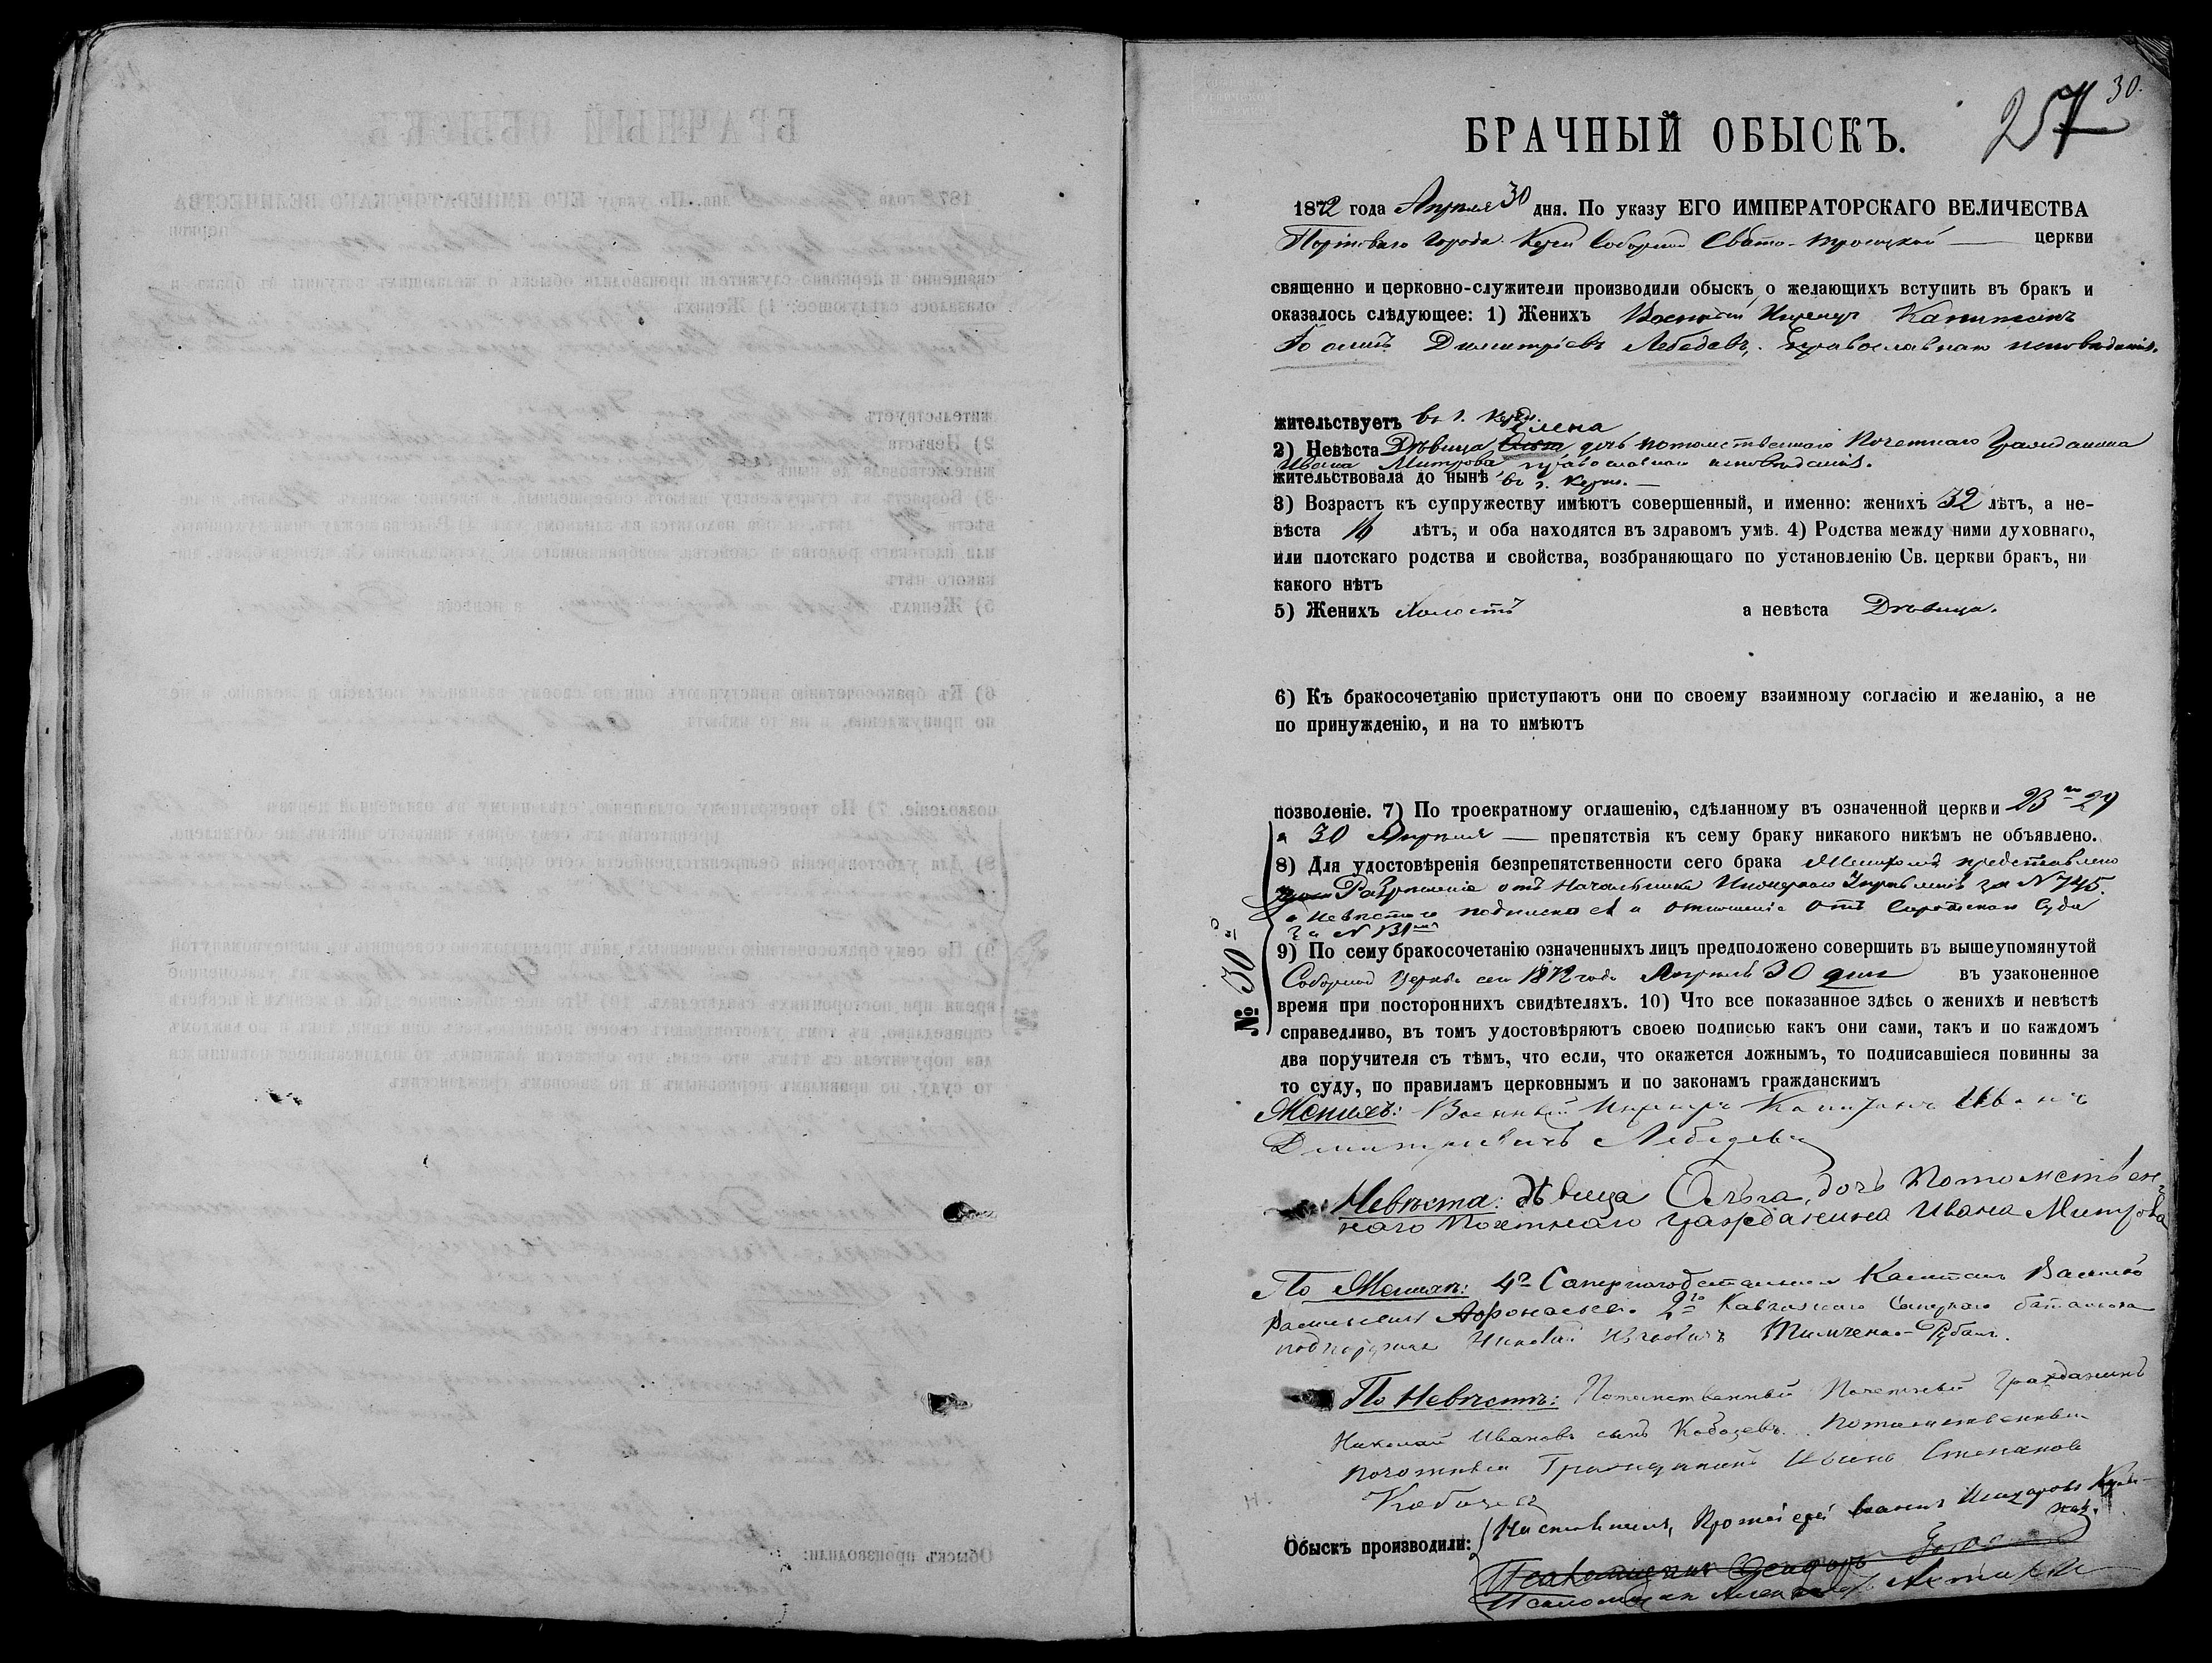 30.
257
БРАЧНЫЙ ОБЫСКЪ.
1872 года Апрѣля 30 дня. По указу ЕГО ИМПЕРАТОРСКАГО ВЕЛИЧЕСТВА
Портоваго Города Керчи Соборной Свято-Троицкой церкви
священно и церковно-служители производили обыскъ о желающихъ вступить въ бракъ и
оказалось слѣдующее: 1) Женихъ Военный Инженеръ Капитанъ
Димитріевъ Лебедевъ, православнаго исповѣданія.
жительствуетъ въ г. Керчи.
Елена
2) Невѣста Дѣвица Ольга дочь потомственнаго Почетнаго Гражданина
Ивана Митрова православнаго исповѣданія.
жительствовала до нынѣ въ г. Керчи.
3) Возрастъ къ супружеству имѣютъ совершенный, и именно: женихъ 32 лѣтъ, а не-
вѣста 16 лѣтъ, и оба находятся въ здравомъ умѣ. 4) Родства между ними духовнаго,
или плотскаго родства и свойства, возбраняющаго по установленію Св. церкви бракъ, ни
какого нѣтъ
5) Женихъ Холостъ а невѣста Дѣвица.
6) Къ бракосочетанію приступаютъ они по своему взаимному согласію и желанію, а не
по принужденію, и на то имѣютъ
позволеніе. 7) По троекратному оглашенію, сдѣланному въ означенной церкви 23 29
и 30 Апрѣля — препятствія къ сему браку никакого никѣмъ не объявлено.
8) Для удостовѣренія безпрепятственности сего брака Женихомъ представлено
Разрѣшеніе отъ Начальника Инженернаго Управленія за N 745.
а Невѣстою подписка и отношеніе отъ Сиротскаго Суда
за N 131
№ 30
9) По сему бракосочетанію означенныхъ лицъ предположено совершить въ вышеупомянутой
Соборной Церкви сего 1872 года Апрѣля 30 дня въ узаконенное
время при постороннихъ свидѣтеляхъ. 10) Что все показанное здѣсь о женихѣ и невѣстѣ
справедливо, въ томъ удостовѣряютъ своею подписью какъ они сами, такъ и по каждомъ
два поручителя съ тѣмъ, что если, что окажется ложнымъ, то подписавшіеся повинны за
то суду, по правиламъ церковнымъ и по законамъ гражданскимъ
Женихъ: Военный Инженеръ Капитанъ Иванъ
Дмитріевичъ Лебедевъ
Невѣста: дѣвица Ольга, дочь Потомствен-
наго Почетнаго гражданина Ивана Митрова
По Женихѣ: 4го Сапернаго баталіона Капитанъ Василій
Васильевичъ Афонасьевъ. 2го Кавказскаго Сапернаго баталіона
подпоручикъ Николай Тимченко-Рубанъ.
По Невѣстѣ: Потомственный Почетный Гражданинъ
Николай Ивановъ сынъ Кобозевъ. Потомственный
почотный Гражданинъ Иванъ Степановъ
Кобозевъ
Обыскъ производили: Настоятель, Протоіерей
Псаломщикъ
Псаломщикъ